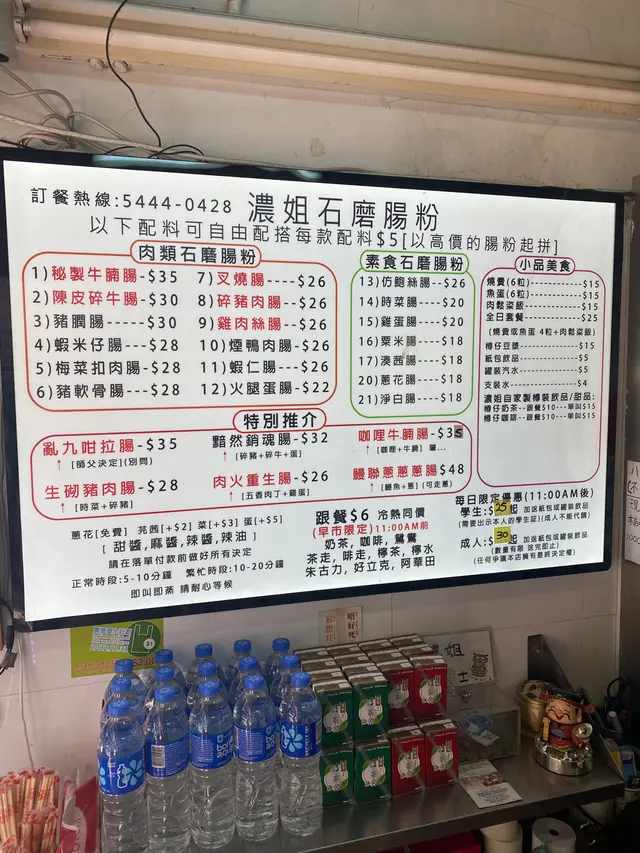 訂餐熱線:5444-0428 濃姐石磨腸粉
以下配料可自由配搭每款配料$5[以高價的腸粉起拼]
肉類石磨腸粉
1)秘製牛腩腸-$35
2)陳皮碎牛腸-$30
3)豬膶腸-----$30
4)蝦米仔腸---$28
5)梅菜扣肉腸-$28
6)豬軟骨腸---$28
7)叉燒腸----$26
8)碎豬肉腸--$26
9)雞肉絲腸--$26
10)煙鴨肉腸-$26
11)蝦仁腸---$26
12)火腿蛋腸-$22
素食石磨腸粉
13)仿鮑絲腸--$26
14)時菜腸----$20
15)雞蛋腸----$20
16)粟米腸----$18
17)湊茜腸----$18
20)蔥花腸----$18
21)淨白腸----$18
小品美食
燒賣(6粒)------------$15
魚蛋(6粒)------------$15
肉鬆粢飯-------------$15
全日套餐-------------$25
(燒賣或魚蛋 4粒+肉鬆粢飯)
樽仔豆漿-------------$15
紙包飲品-------------$5
罐裝汽水-------------$5
支裝水---------------$4
濃姐自家製樽裝飲品/甜品:
樽仔奶茶--跟餐$10---單叫$15
樽仔咖啡--跟餐$10---單叫$15
特別推介
亂九咁拉腸-$35
↑ [師父決定](別問)
生砌豬肉腸-$28
↑ [時菜+碎豬]
黯然銷魂腸-$32
↑ [碎豬+碎牛+蛋]
肉火重生腸-$26
↑ [五香肉丁+雞蛋]
咖哩牛腩腸-$35
↑ [咖哩+牛腩] 囉...
鰻聯蔥蔥蔥腸$48
↑ [鰻魚+蔥] (可走蔥)
蔥花[免費] 芫茜[+$2] 菜[+$3] 蛋[+$5]
[ 甜醬,麻醬,辣醬,辣油 ]
請在落單付款前做好所有決定
正常時段:5-10分鐘 繁忙時段:10-20分鐘
即叫即蒸 請耐心等候
跟餐$6 冷熱同價
(早市限定)11:00AM前
奶茶, 咖啡, 鴛鴦
茶走, 啡走, 檸茶, 檸水
朱古力, 好立克, 阿華田
每日限定優惠(11:00AM後)
學生:$25起 加送紙包或罐裝飲品
(需要出示本人的學生証)(成人不能代購)
成人:$30起 加送紙包或罐裝飲品
(數量有限 送完即止)
(任何爭議本店擁有最終決定權)
姐